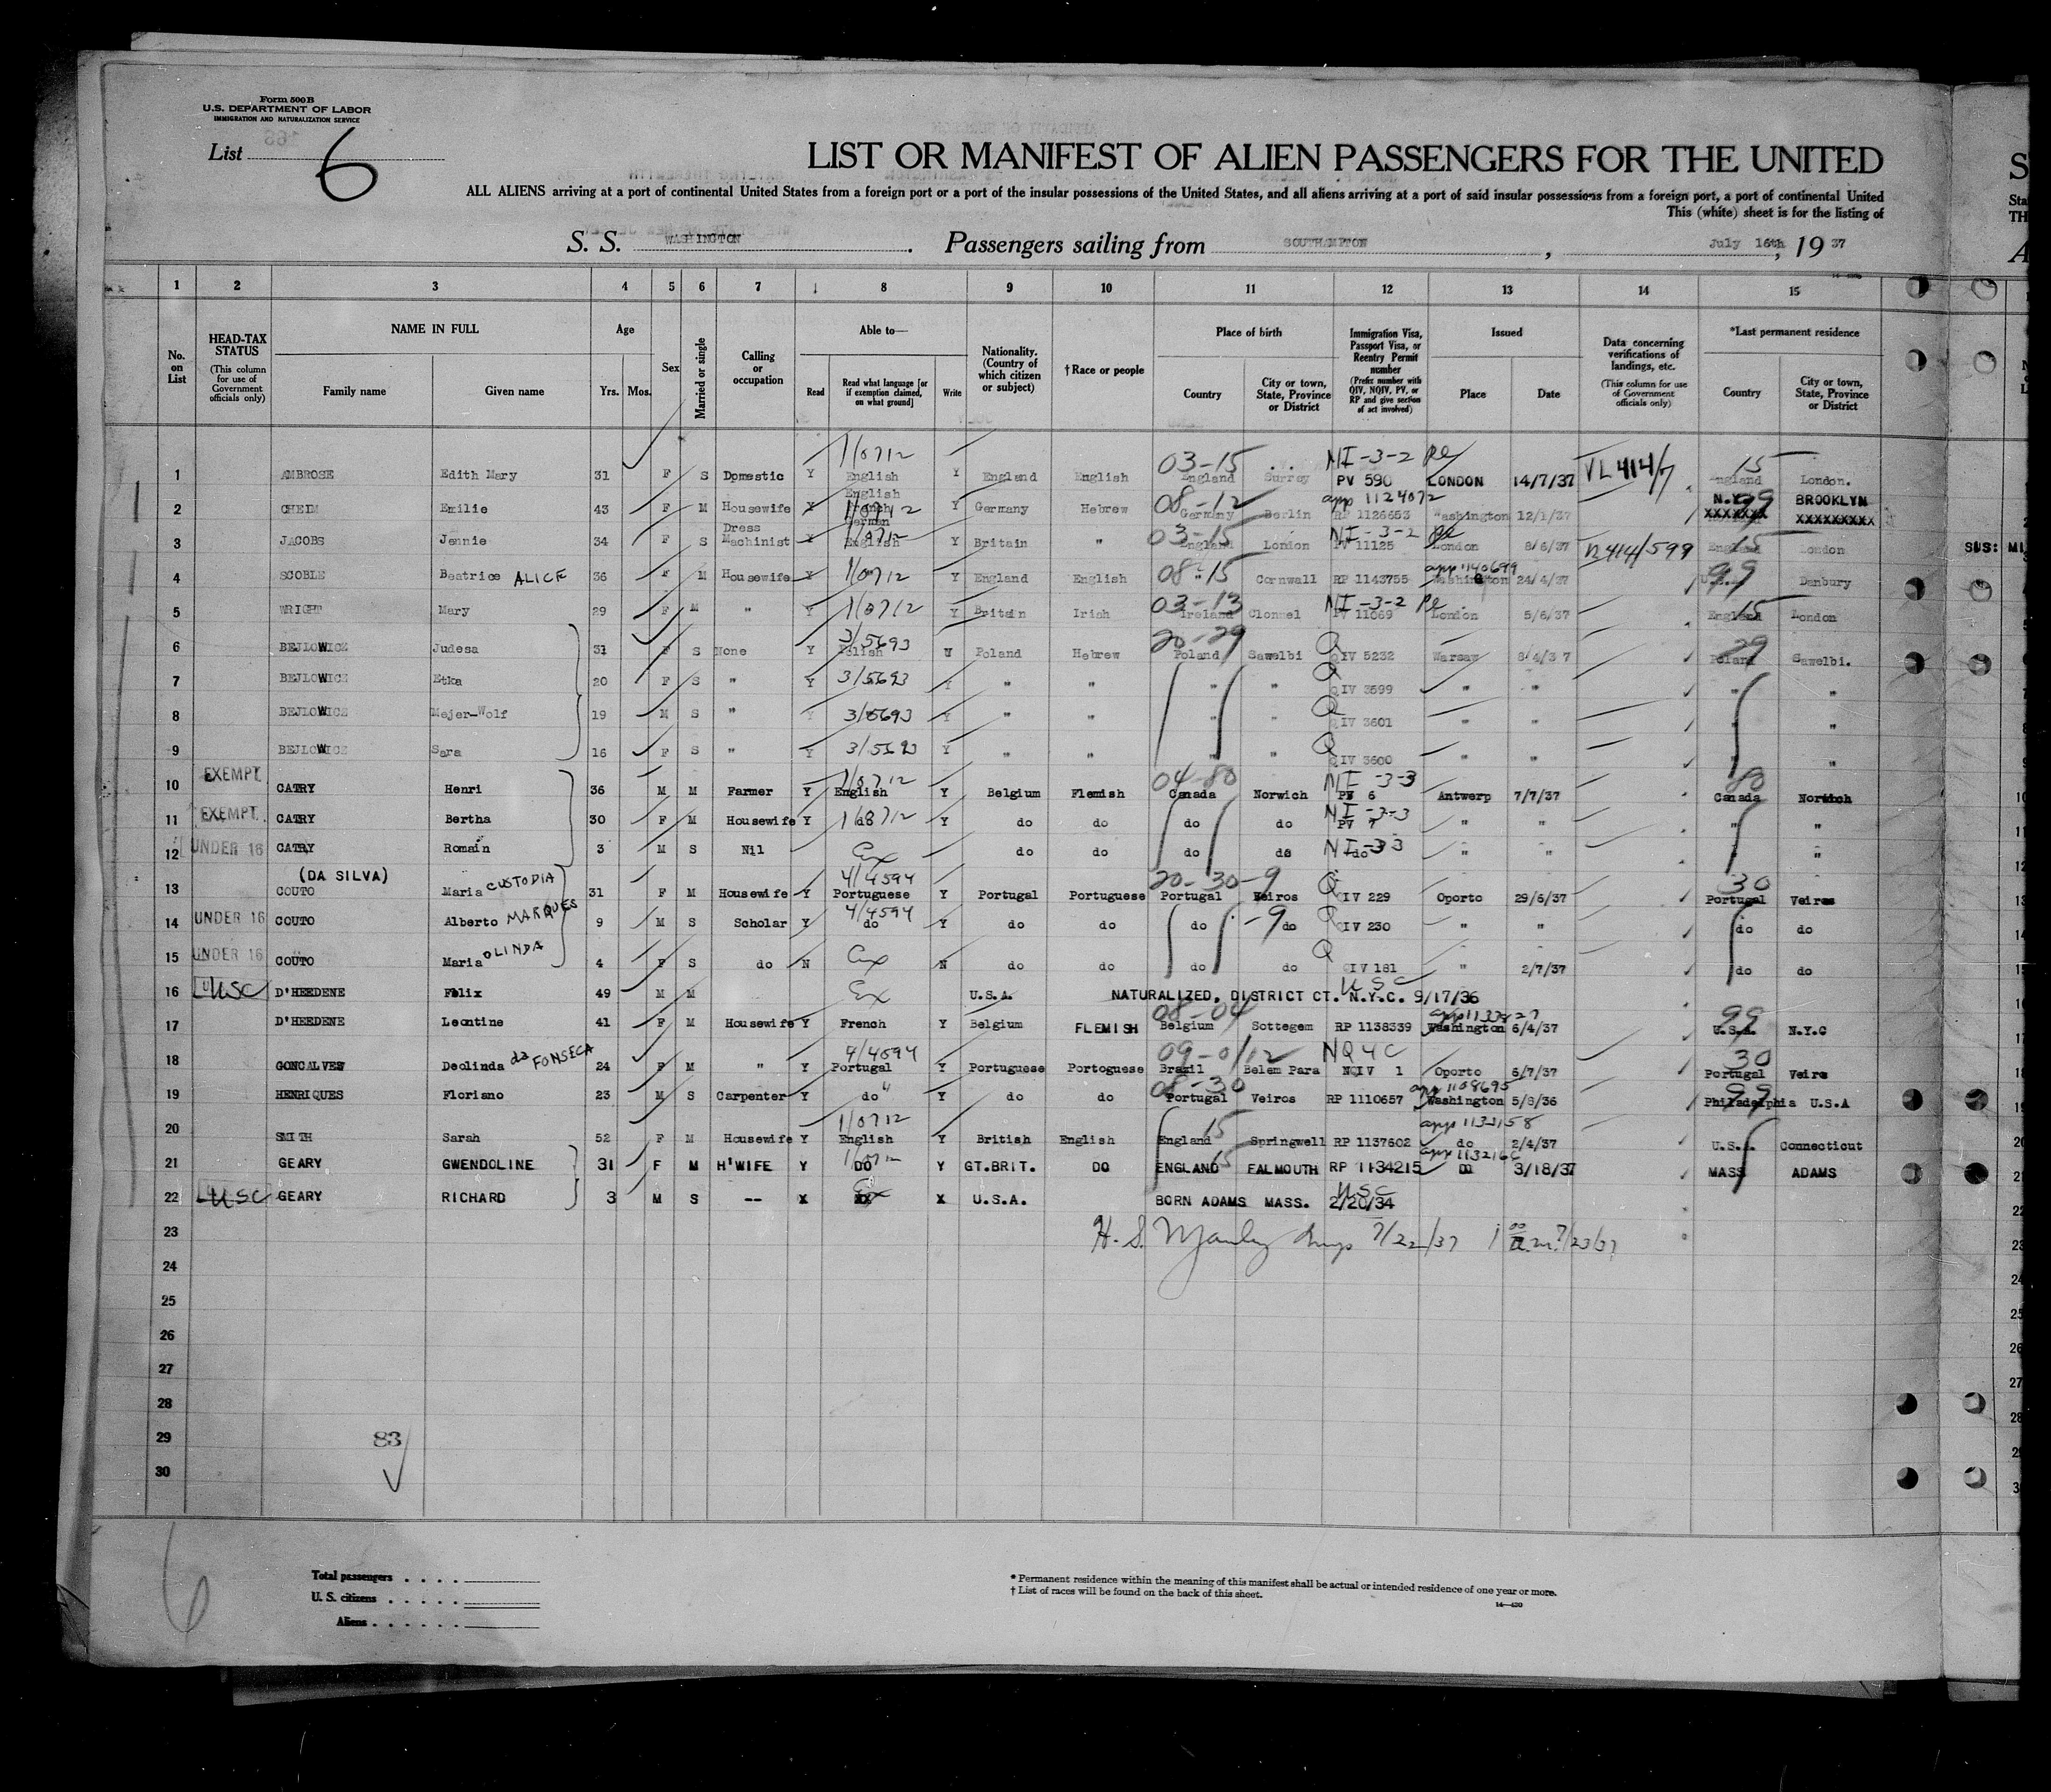 Form 500B
U.S. DEPARTMENT OF LABOR
IMMIGRATION AND NATURALIZATION SERVICE
List 6
LIST OR MANIFEST OF ALIEN PASSENGERS FOR THE UNITED
ALL ALIENS arriving at a port of continental United States from a foreign port or a port of the insular possessions of the United States, and all aliens arriving at a port of said insular possessions from a foreign port, a port of continental United
This (white) sheet is for the listing of
S. S. WASHINGTON. Passengers sailing from SOUTHAMPTON, July 16th, 1937
1 2 3 4 5 6 7 8 9 10 11 12 13 14 15
No. on List
HEAD-TAX STATUS (This column for use of Government officials only)
NAME IN FULL Family name Given name
Age Yrs. Mos.
Sex
Married or single
Calling or occupation
Able to— Read Read what language [or if exemption claimed, on what ground] Write
Nationality. (Country of which citizen or subject)
†Race or people
Place of birth Country City or town, State, Province or District
Immigration Visa, Passport Visa, or Reentry Permit number (Prefix number with QIV, NQIV, PV, or RP and give section of act involved)
Issued Place Date
Data concerning verifications of landings, etc. (This column for use of Government officials only)
*Last permanent residence Country City or town, State, Province or District
1/0712 03-15 NI-3-2 VL414/7 15
1 AMBROSE Edith Mary 31 F S Domestic Y English Y England English England Surrey PV 590 LONDON 14/7/37 England London.
08-12 app 1124072 N.Y. 99 BROOKLYN
2 CHEIM Emilie 43 F M Housewife Y English French German Y Germany Hebrew Germany Berlin RP 1126653 Washington 12/1/37 XXXXXXX XXXXXXXXX
03-15 NI-3-2 15
3 JACOBS Jennie 34 F S Dress Machinist Y English 1/0712 Y Britain " England London PV 11125 London 8/6/37 England London
SUS: MI
4 SCOBLE Beatrice ALICE 36 F M Housewife Y 1/0712 Y England English 08-15 Cornwall RP 1143755 app 1140699 Washington 24/4/37 99 Danbury
5 WRIGHT Mary 29 F M " Y 1/0712 Y Britain Irish 03-13 Ireland Clonmel NI-3-2 PV 11069 London 5/6/37 England 15 London
6 BEJLOWICZ Judesa 31 F S None Y 3/5693 Polish Poland Hebrew 20-29 Poland Sawelbi QIV 5232 Warsaw 8/4/37 Poland 29 Sawelbi.
7 BEJLOWICZ Etka 20 F S " Y 3/5693 Y " " " " QIV 3599 " " " "
8 BEJLOWICZ Mejer-Wolf 19 M S " Y 3/5693 Y " " " " QIV 3601 " " " "
9 BEJLOWICZ Sara 16 F S " Y 3/5693 Y " " " " QIV 3600 " " " "
10 EXEMPT. CATRY Henri 36 M M Farmer Y 1/0712 English Y Belgium Flemish 04-80 Canada Norwich NI-3-3 PV 6 Antwerp 7/7/37 80 Canada Norwich
11 EXEMPT. CATRY Bertha 30 F M Housewife Y do Y do do do do NI-3-3 PV 7 " " " "
12 UNDER 16 CATRY Romain 3 M S Nil Ex do do do do NI-33 do " " " "
(DA SILVA)
13 COUTO Maria CUSTODIA 31 F M Housewife Y 4/4594 Portuguese Y Portugal Portuguese 20-30-9 Portugal Veiros QIV 229 Oporto 29/6/37 30 Portugal Veiros
14 UNDER 16 COUTO Alberto MARQUES 9 M S Scholar Y 4/4594 do Y do do do -9 do QIV 230 " " do do
15 UNDER 16 COUTO Maria OLINDA 4 F S do N Ex N do do do do QIV 181 " 2/7/37 do do
16 USC D'HEEDENE Felix 49 M M Ex U.S.A. NATURALIZED, DISTRICT CT. N.Y.C. 9/17/36 USC
17 D'HEEDENE Leontine 41 F M Housewife Y French Y Belgium FLEMISH 08-04 Belgium Sottegem RP 1138339 Washington 6/4/37 99 U.S.A. N.Y.C
18 GONCALVES Deolinda da FONSECA 24 F M " Y 4/4594 Portugal Y Portuguese Portoguese 09-0/12 Brazil Belem Para NQ4C NQIV 1 Oporto 6/7/37 30 Portugal Veiro
19 HENRIQUES Floriano 23 M S Carpenter Y do " Y do do 08-30 Portugal Veiros RP 1110657 app 1108695 Washington 5/8/36 99 Philadelphia U.S.A
20 SMITH Sarah 52 F M Housewife Y 1/0712 English Y British English England 15 Springwell RP 1137602 do 2/4/37 U.S.A. Connecticut
21 GEARY GWENDOLINE 31 F M H'WIFE Y DO Y GT.BRIT. DO ENGLAND 15 FALMOUTH RP 1134215 DO 3/18/37 MASS ADAMS
22 USC GEARY RICHARD 3 M S -- X Ex X U.S.A. BORN ADAMS MASS. 2/20/34 USC
23 H. S. Manley Insp 7/22/37 1 00 a.m. 7/23/37
24
25
26
27
28
29 83
30
6
Total passengers
U. S. citizens
Aliens
* Permanent residence within the meaning of this manifest shall be actual or intended residence of one year or more.
† List of races will be found on the back of this sheet.
14—430